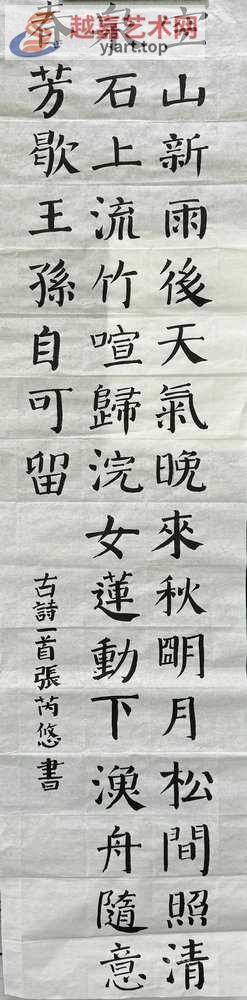 越嘉艺术网
yjart.top
空山新雨後天氣晚來秋明月松間照清
泉石上流竹喧歸浣女蓮動下漁舟隨意
春芳歇王孫自可留
古詩一首張芮悠書